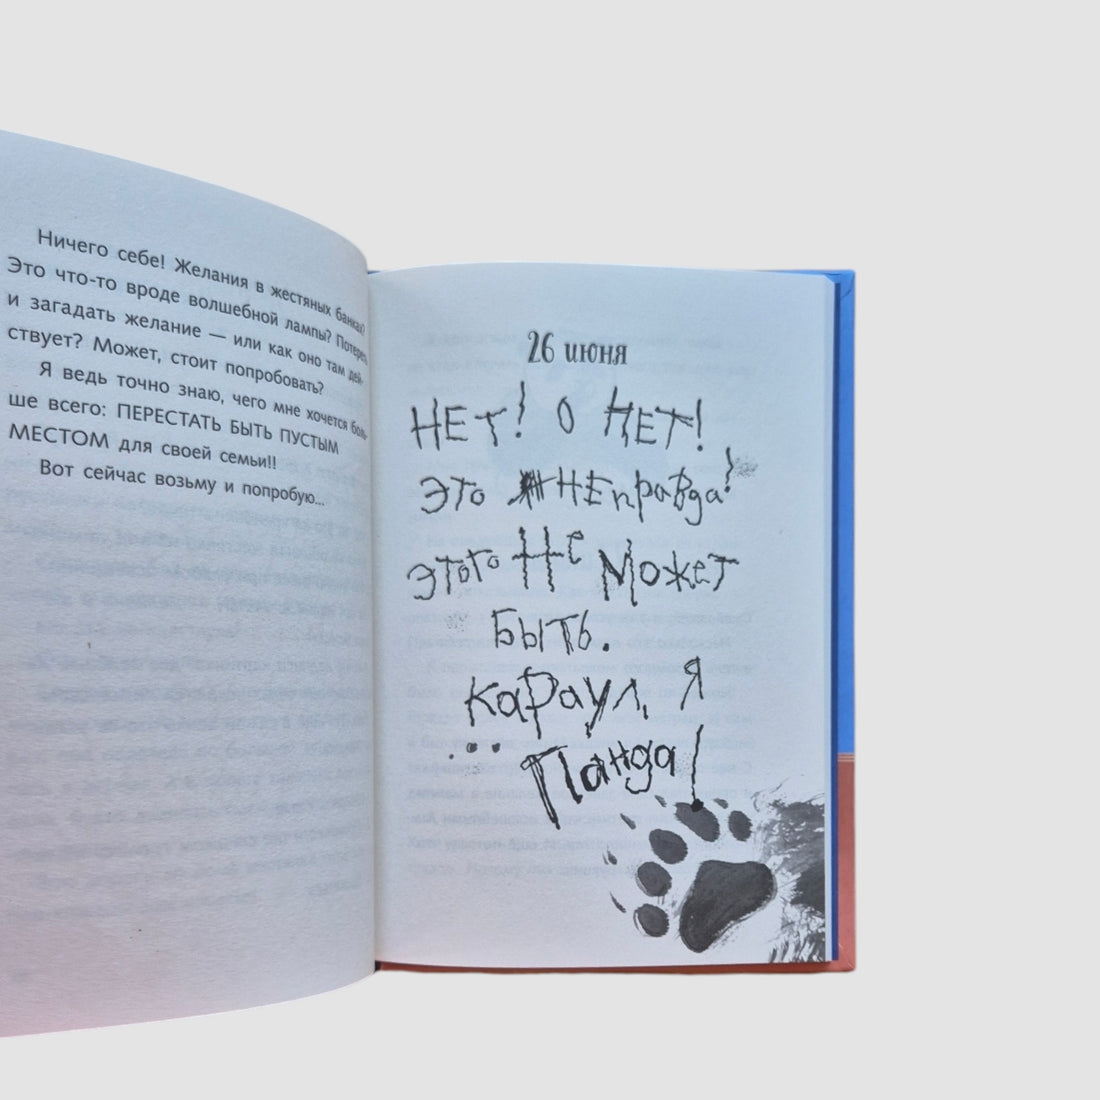 Ничего себе! Желания в жестяных банках?
Это что-то вроде волшебной лампы? Потереть
и загадать желание — или как оно там дей-
ствует? Может, стоит попробовать?
Я ведь точно знаю, чего мне хочется боль-
ше всего: ПЕРЕСТАТЬ БЫТЬ ПУСТЫМ
МЕСТОМ для своей семьи!!
Вот сейчас возьму и попробую...
26 июня
НЕТ! О НЕТ!
Это НЕправда!
Этого НЕ Может
БЫТЬ.
караул, Я
... Панда!